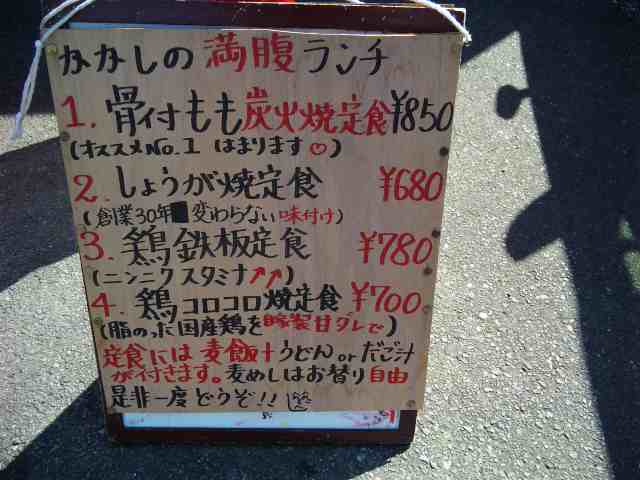 かかしの満腹ランチ
1. 骨付もも炭火焼定食¥850
(オススメNo.1 はまります♡)
2. しょうが焼定食 ¥680
(創業30年 変わらない味付け)
3. 鶏鉄板定食 ¥780
(ニンニクスタミナ↗↗)
4. 鶏コロコロ焼定食¥700
(脂のった国産鶏を自家製甘ダレで)
定食には麦飯+うどんorだご汁
が付きます。麦めしはお替り自由
是非一度どうぞ!!